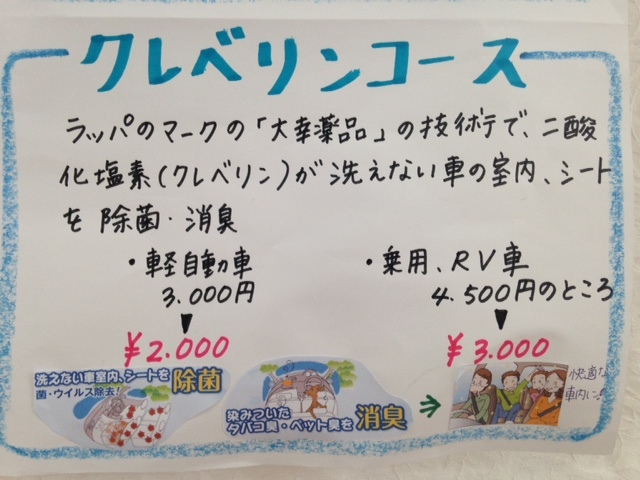 クレベリンコース
ラッパのマークの「大幸薬品」の技術で、二酸
化塩素(クレベリン)が洗えない車の室内、シート
を除菌・消臭
・軽自動車
3.000円
¥2.000
・乗用、RV車
4.500円のところ
¥3.000
洗えない車室内、シートを除菌
菌・ウイルス除去!
染みついた
タバコ臭・ペット臭を消臭
→
快適な
車内に!